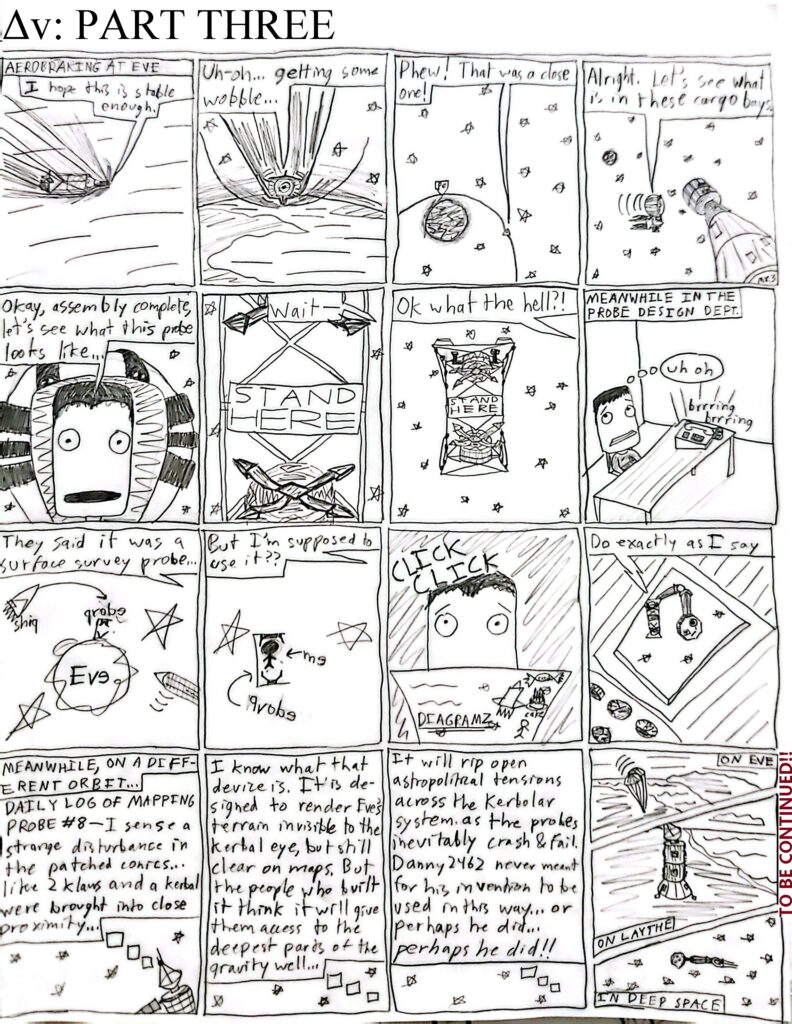 Δv: PART THREE
AEROBRAKING AT EVE
I hope this is stable
enough.
Uh-oh... getting some
wobble...
Phew! That was a close
one!
Alright. Let's see what
is in these cargo bays.
Okay, assembly complete,
let's see what this probe
looks like...
Wait—
STAND
HERE
Ok what the hell?!
STAND
HERE
MEANWHILE IN THE
PROBE DESIGN DEPT.
uh oh
brrring
brrring
They said it was a
surface survey probe...
ship
probe
Eve
But I'm supposed to
use it??
me
probe
CLICK
CLICK
DIAGRAMZ
Do exactly as I say
MEANWHILE, ON A DIFF-
ERENT ORBIT...
DAILY LOG OF MAPPING
PROBE #8—I sense a
strange disturbance in
the patched conics...
like 2 klaws and a kerbal
were brought into close
proximity...
I know what that
device is. It is de-
signed to render Eve's
terrain invisible to the
kerbal eye, but still
clear on maps. But
the people who built
it think it will give
them access to the
deepest parts of the
gravity well...
It will rip open
astropolitical tensions
across the Kerbolar
system as the probes
inevitably crash & fail.
Danny2462 never meant
for his invention to be
used in this way... or
perhaps he did...
perhaps he did!!
ON EVE
ON LAYTHE
IN DEEP SPACE
TO BE CONTINUED!!